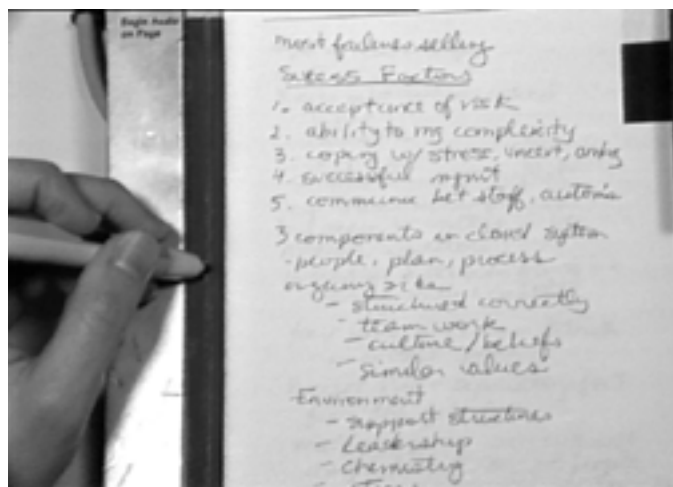 Begin Audio
on Page
most failures selling
Success Factors
1. acceptance of risk
2. ability to mg complexity
3. coping w/ stress, uncert, ambig
4. successful mgmt
5. communic bet staff, customs
3 components in closed system
- people, plan, process
- structured correctly
- team work
- culture / beliefs
- similar values
Environment
- support structures
- Leadership
- chemistry